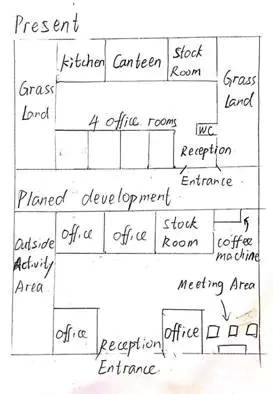 Present
kitchen Canteen Stock Room
Grass Land
Grass Land
4 office rooms
WC
Reception
Entrance
Planed development
office office Stock Room
coffee machine
Outside Activity Area
Meeting Area
office
office
Reception
Entrance